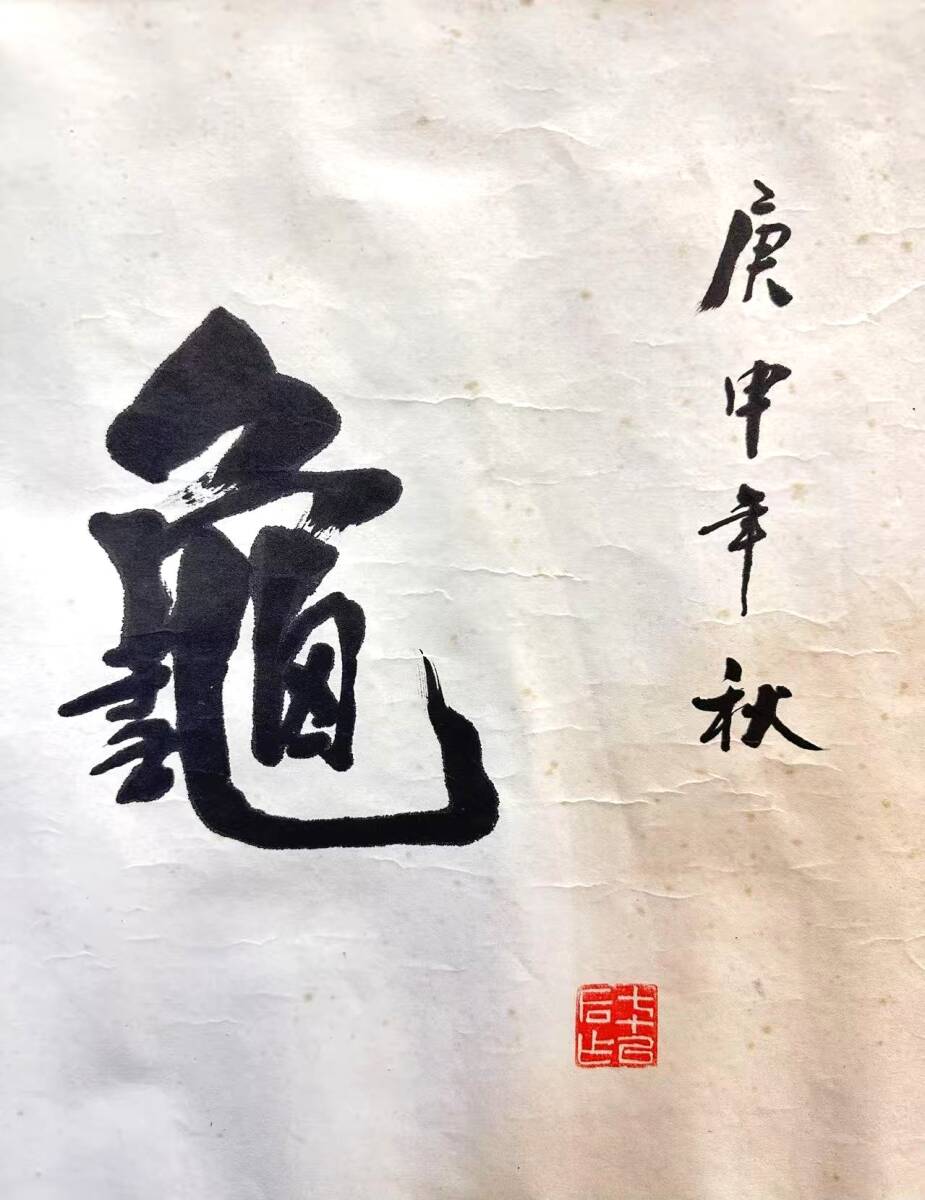 庚申年秋
龜